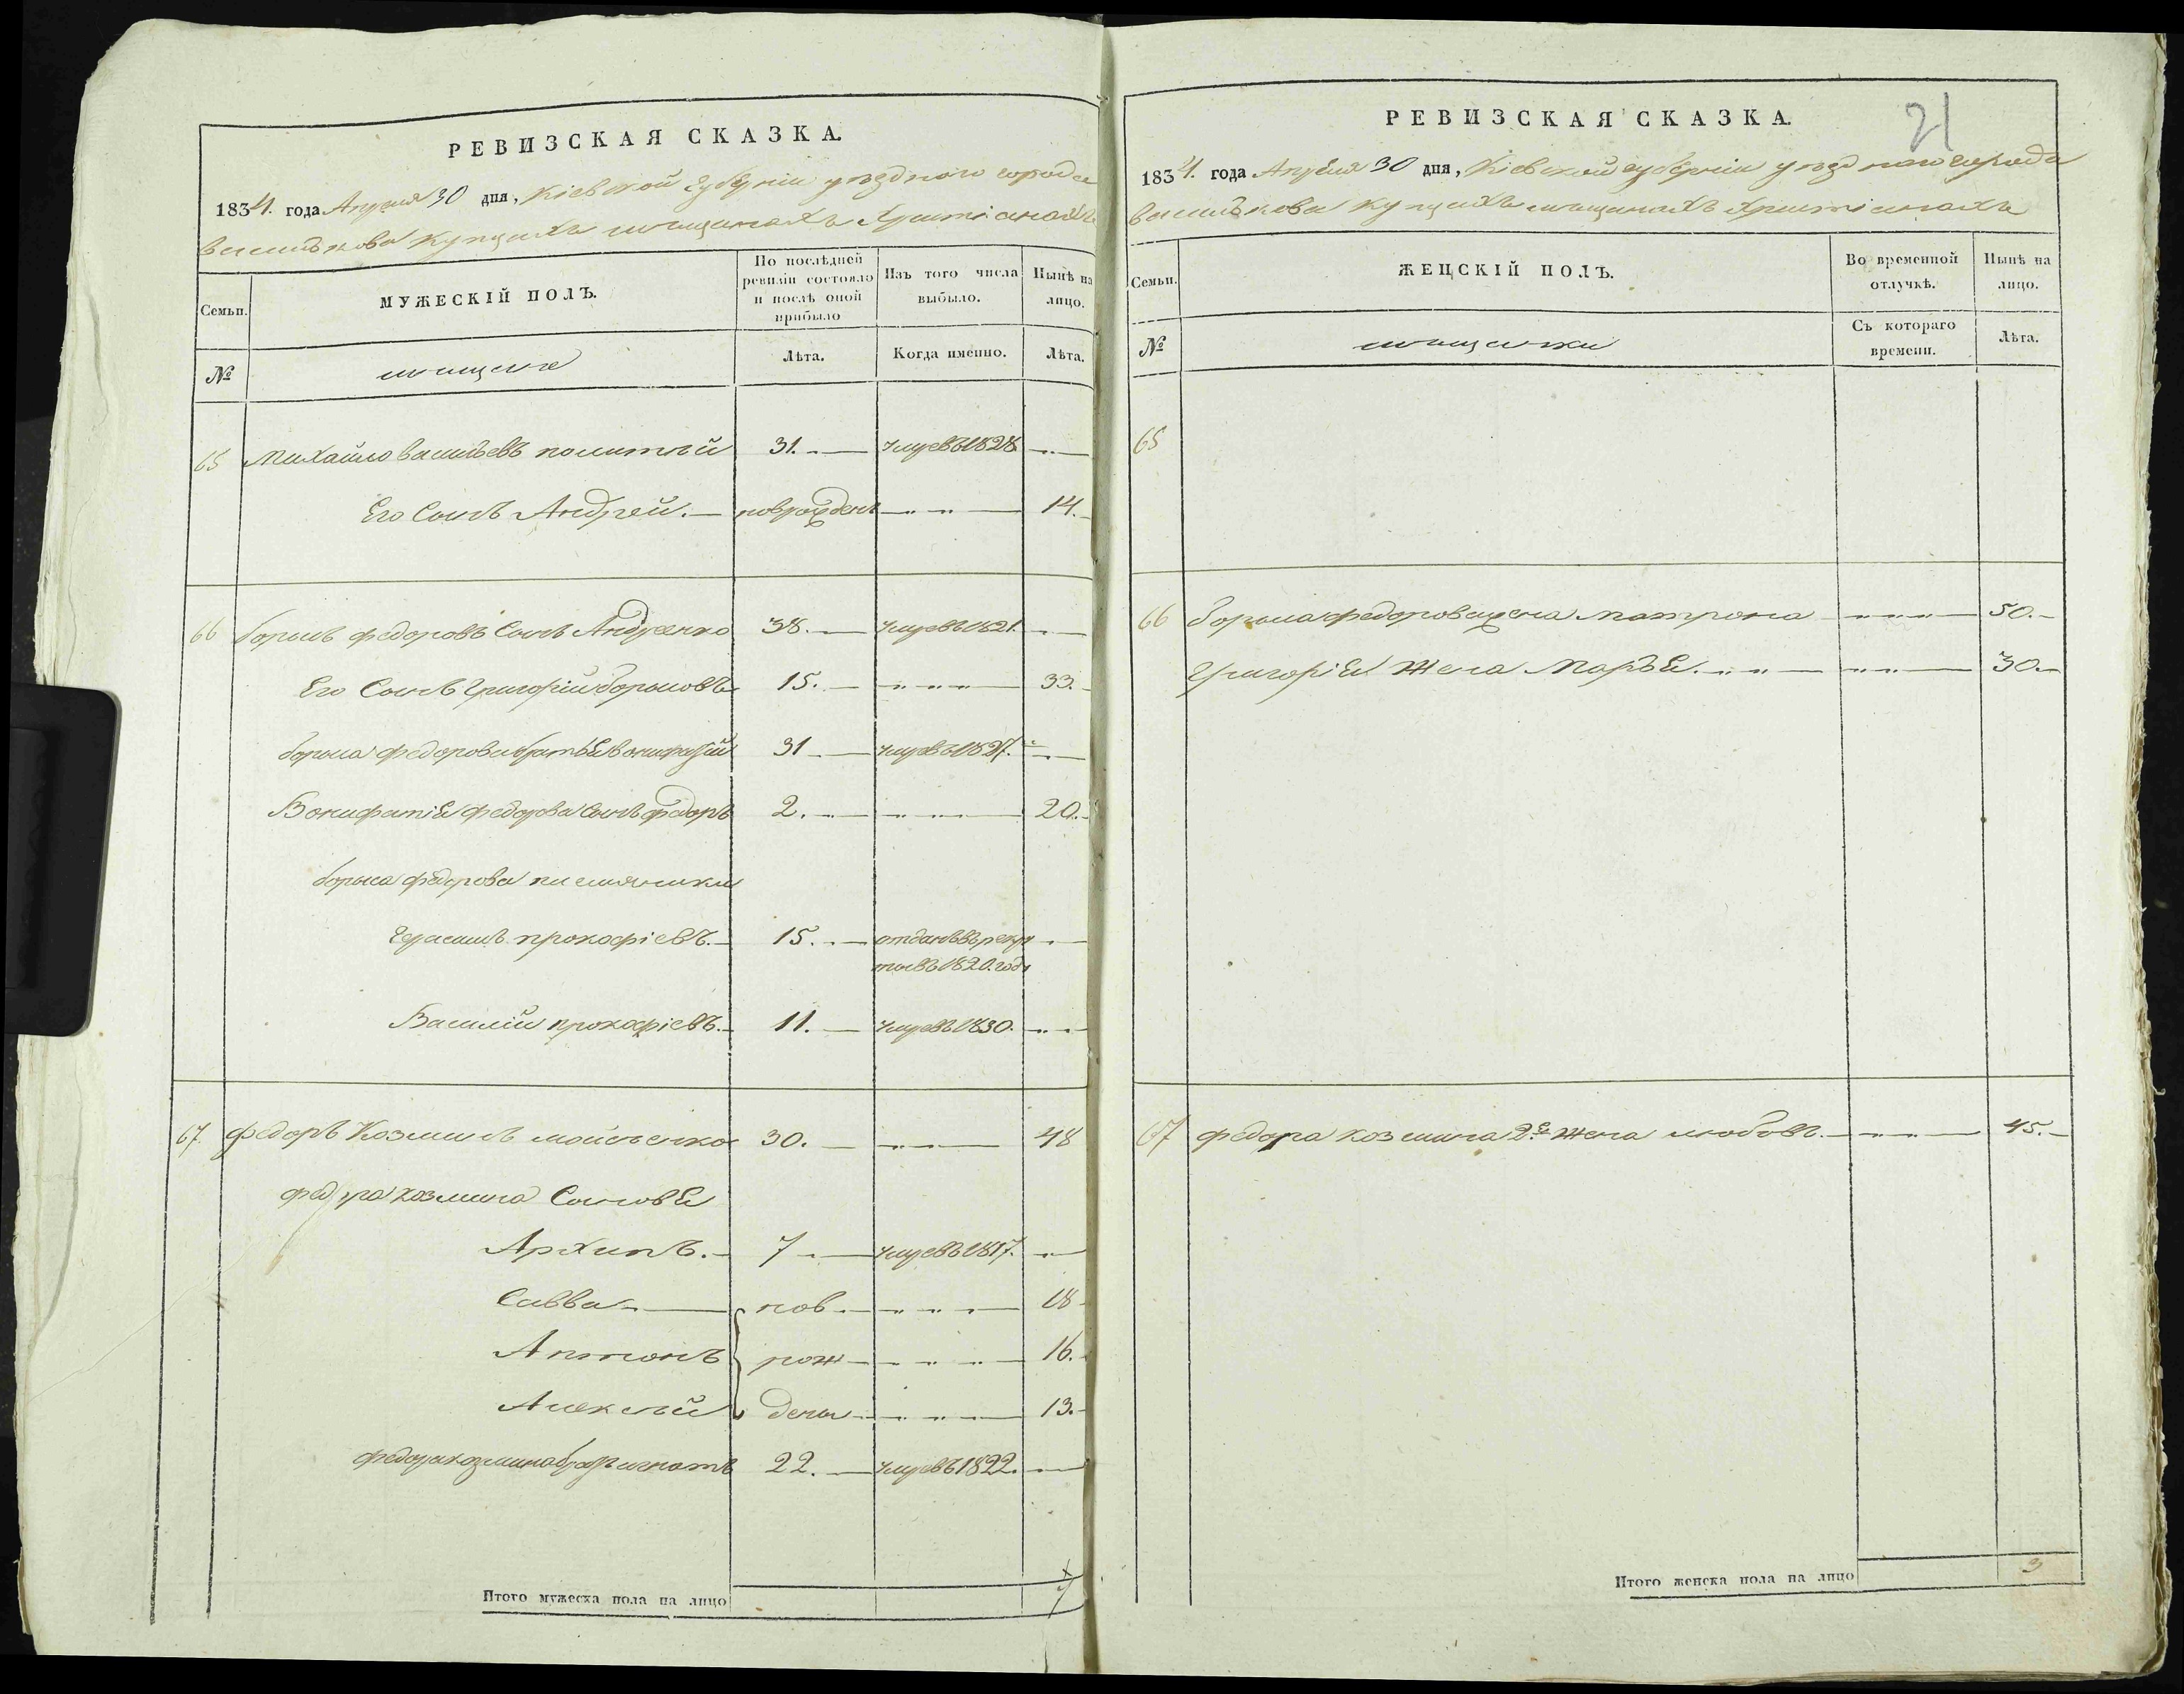 РЕВИЗСКАЯ СКАЗКА.
1834. года Апреля 30 дня, Кіевской губерніи уезднаго города
василькова купцахъ мещанахъ христіанахъ
Семьи.
МУЖЕСКІЙ ПОЛЪ.
По послѣдней ревизіи состояло и послѣ оной прибыло
Изъ того числа выбыло.
Нынѣ на лицо.
№
мещане
Лѣта.
Когда именно.
Лѣта.
65 Михайло васильевъ 31. умре въ 1828
Его Сынъ Андрей. новорожденъ 14.
66 борисъ федоровъ Сынъ Андреенко 38. умре въ 1821.
Его Сынъ Григорій борисовъ 15. 33.
бориса федорова братъ Вонифатій 31 умре въ 1827.
Вонифатіе федорова Сынъ федоръ 2. 20.
бориса федорова племянники
Герасимъ прокофіевъ. 15. отданъ въ рекру
ты въ 1820. годе
Василій прокофіевъ. 11. умре въ 1830.
67 федоръ Козминъ мойсеенко 30. 48
федора козмина Сыновья
Архипъ. 7 умре въ 1817.
Савва нов 18
Антонъ рож 16.
Алексей дены 13.
федора козмина братъ игнатъ 22. умре въ 1822.
Итого мужеска пола на лицо 7
РЕВИЗСКАЯ СКАЗКА.
21
1834. года Апреля 30 дня, Кіевской губерніи уезднаго города
василькова купцахъ мещанахъ христіанахъ
Семьи.
ЖЕНСКІЙ ПОЛЪ.
Во временной отлучкѣ.
Нынѣ на лицо.
№
мещанки
Съ котораго времени.
Лѣта.
65
66 бориса федорова жена матрона 50.
Григоріе жена Марья 30.
67 федора козмина 2я жена любовъ. 45.
Итого женска пола на лицо 3